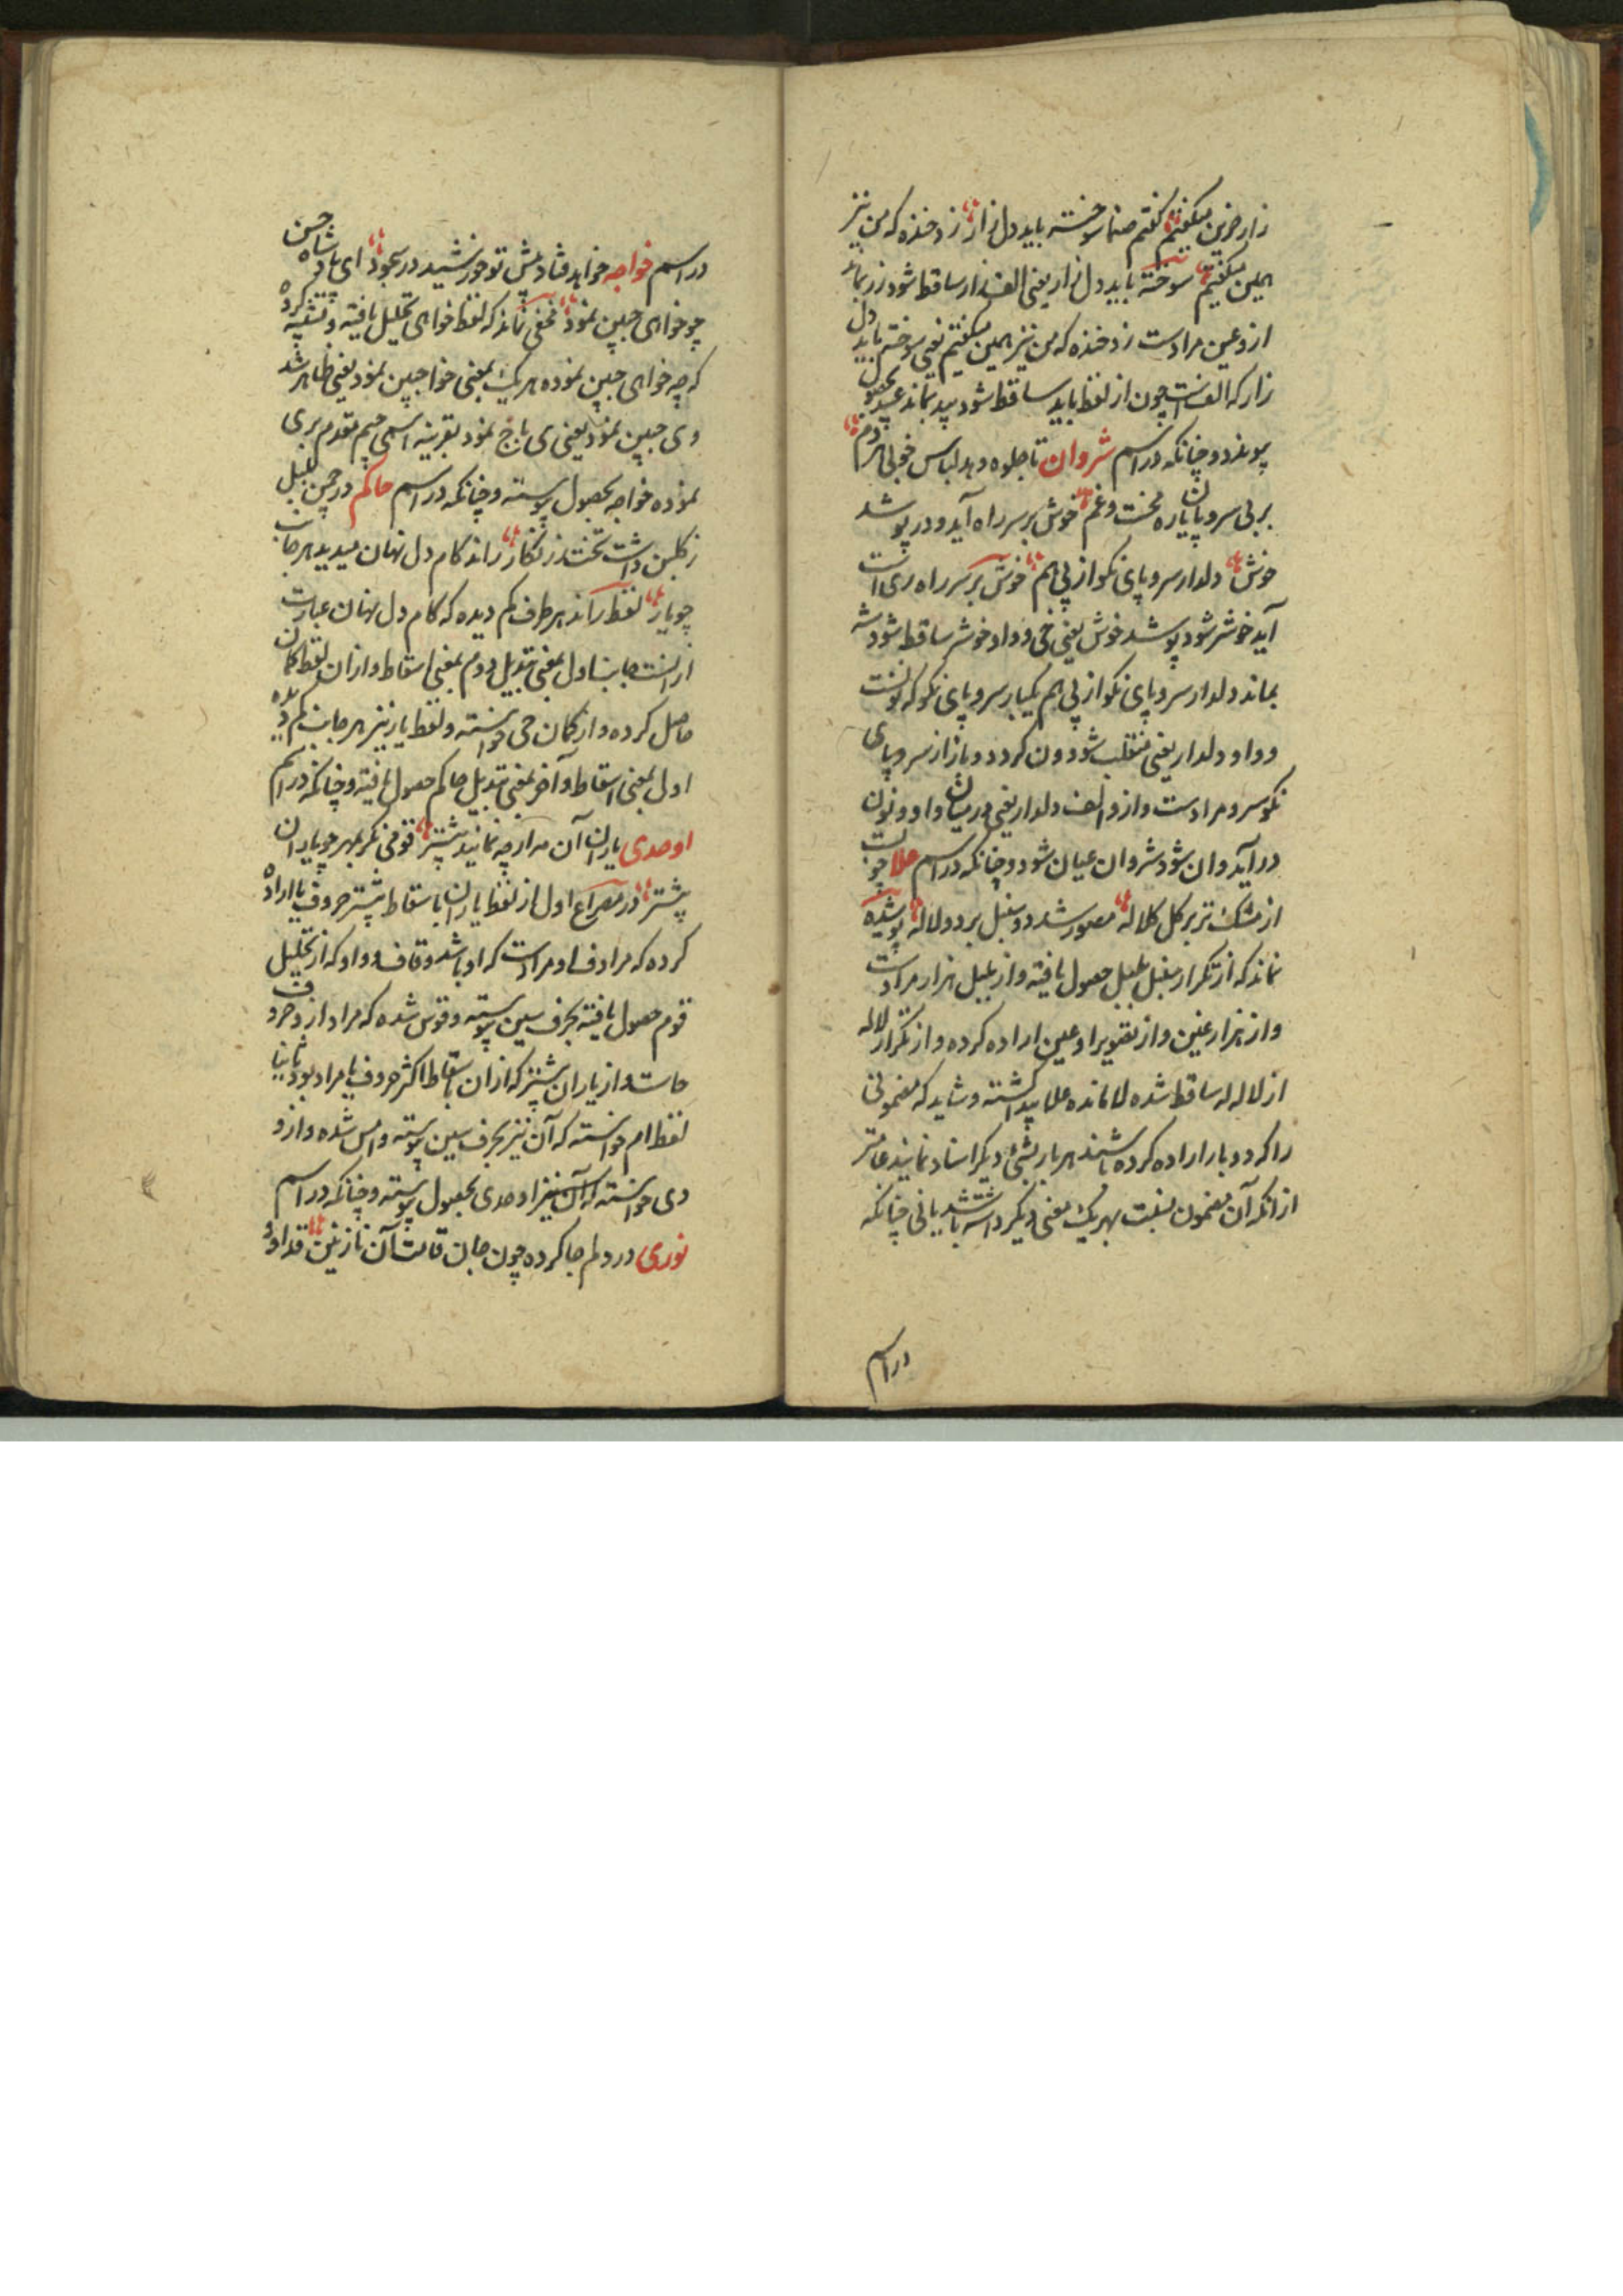 زار حزین میگفتم گفتم صنما سوخته باید دل زار زد خنده که من نیز
همین میگفتم سوخته باید دل زار یعنی الف زار ساقط شود زر بماند
ازو عین مرادست زد خنده که من نیز همین میگفتم یعنی سوخته باید دل
زار که الفست چون از لفظ باید ساقط شود بید بماند عبید بحصول
پیوندد و چنانکه در اسم شروان تا جلوه دهد لباس خوبی هر دم
بر بی سر و پایان محنت و غم خوش بر سر راه آید و در پوشد
خوش دلدار سر و پای نکو از پی هم خوش بر سر راه که ری است
آید خوشر شود پوشد خوش یعنی خی و واو خوشر ساقط شود شر
بماند دلدار سر و پای نکو از پی هم یکبار سر و پای نکو که نونست
و واو دلدار یعنی منقلب شود ون گردد و باز از سر و پای
نکو سرو مرادست وازو الف دلدار یعنی در میان واو و نون
در آید وان شود شروان عیان شود و چنانکه در اسم علا چو بست
از مشک تر بر گل کلاله مصور شد دو سنبل بر دو لاله پوشیده
نماند که از تکرار سنبل بلبل حصول یافته و از بلبل هزار مرادست
و از هزار غین و از تصویر او عین اراده کرده و از تکرار لاله
از لاله له ساقط شده لا مانده علا پیدا گشته و شاید که مضمونی
را که دو بار اراده کرده باشند هر بار بشیء دیگر اسناد نمایند عامتر
از آنکه آن مضمون بنسبت بهر یک معنی دیگر داشته باشد یا نی چنانکه
در اسم
در اسم خواجه خواهد فتاد پیش تو خورشید در سجود ای پادشاه حسن
چو خواهی جبین نمود مخفی نماند که لفظ خواهی تحلیل یافته و تنبیه کرده
که چه خواهی جبین نموده هر یک بمعنی خوا جبین نمود یعنی ظاهر شد
و هی جبین نمود یعنی هی با ج نمود بقرینه اسمی جیم مقدم بر هی
نموده خواجه بحصول پیوسته و چنانکه در اسم حاکم در چمن بلبل
ز گلبن داشت تخت زرنگار راند کام دل نهان میدید هر جانب
چو یار لفظ راند هر طرف کم دیده که کام دل نهان عبارت
از آنست جانب اول بمعنی تبدیل دوم بمعنی اسقاط و از ان لفظ کمان
حاصل کرده و از کمان حی خواسته و لفظ یار نیز هر جانب کم دیده
اول بمعنی اسقاط و آخر بمعنی تبدیل حاکم حصول یافته و چنانکه در اسم
اوحدی یاران آن مه ار چه نمایند پیشتر قومی نگر بمهر چو یاران
پیشتر در مصراع اول از لفظ یاران با سقاط پیشتر حروف یا اراده
کرده که مرادف او مرادست که او باشد و قاف و واو که از تحلیل
قوم حصول یافته بحرف سین پیوسته و قوس شده که مراد ازو حرف
حاست و از یاران پیشتر که از ان باسقاط اکثر حروف یا مراد بود ثانیا
لفظ ام خواسته که آن نیز بحرف سین پیوسته و امس شده و ازو
دی خواسته که آن نیز اوحدی بحصول پیوسته و چنانکه در اسم
نوری در دلم جا کرده چون جان قامت آن نازنین قد او